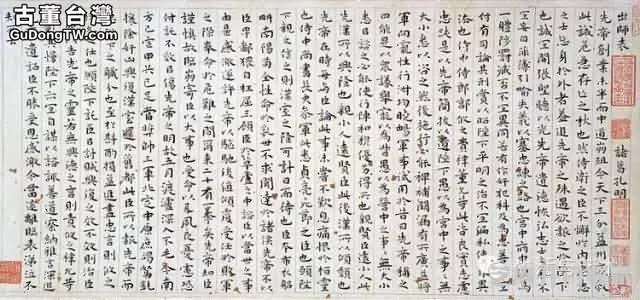 古董台灣
GuDongTW.Com
出師表 諸葛孔明
先帝創業未半而中道崩殂今天下三分益州疲敝
此誠危急存亡之秋也然侍衛之臣不懈於內忠志
之士忘身於外者蓋追先帝之殊遇欲報之於陛下
也誠宜開張聖聽以光先帝遺德恢弘志士之氣不
宜妄自菲薄引喻失義以塞忠諫之路也宮中府中俱為
一體陟罰臧否不宜異同若有作姦犯科及為忠善者宜
付有司論其刑賞以昭陛下平明之治不宜偏私使內外異
法也侍中侍郎郭攸之費禕董允等此皆良實志慮
忠純是以先帝簡拔以遺陛下愚以為宮中之事事無
大小悉以咨之然後施行必能裨補闕漏有所廣益將
軍向寵性行淑均曉暢軍事試用於昔日先帝稱之
曰能是以眾議舉寵為督愚以為營中之事事無大小
悉以咨之必能使行陣和穆優劣得所也親賢臣遠小人此
先漢所以興隆也親小人遠賢臣此後漢所以傾頹也
先帝在時每與臣論此事未嘗不歎息痛恨於桓靈
也侍中尚書長史參軍此悉貞亮死節之臣也願陛
下親之信之則漢室之隆可計日而待也臣本布衣躬
耕南陽苟全性命於亂世不求聞達於諸侯先帝不以
臣卑鄙猥自枉屈三顧臣於草廬之中諮臣以當世之事
由是感激遂許先帝以驅馳後值傾覆受任於敗軍
之際奉命於危難之間爾來二十有一年矣先帝知臣
謹慎故臨崩寄臣以大事也受命以來夙夜憂慮恐
付託不效以傷先帝之明故五月渡瀘深入不毛今南
方已定甲兵已足當獎帥三軍北定中原庶竭駑鈍
攘除姦凶興復漢室還於舊都此臣所以報先帝而忠
陛下之職分也至於斟酌損益進盡忠言則攸之禕允
之任也願陛下託臣以討賊興復之效不效則治臣
之罪以告先帝之靈若無興德之言則責攸之禕允等
咎以彰其慢陛下亦宜自謀以諮諏善道察納雅言深追
先帝遺詔臣不勝受恩感激今當遠離臨表涕泣不
知所云